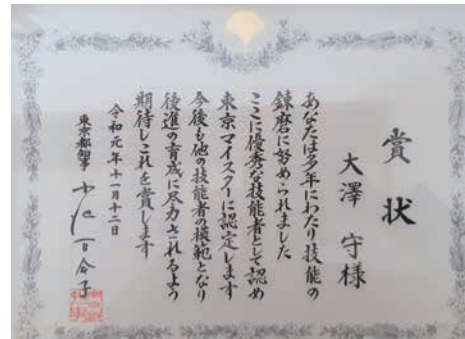 賞状
大澤 守様
あなたは多年にわたり技能の
錬磨に努められました
ここに優秀な技能者として認め
東京マイスターに認定します
今後も他の技能者の模範となり
後進の育成に尽力されるよう
期待しこれを賞します
令和元年十一月十二日
東京都知事 小池百合子